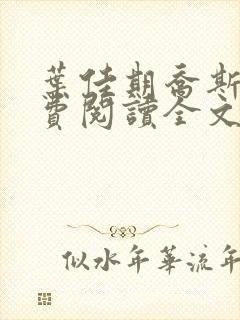 葉佳期喬斯
費閱讀全文
似水年華流年